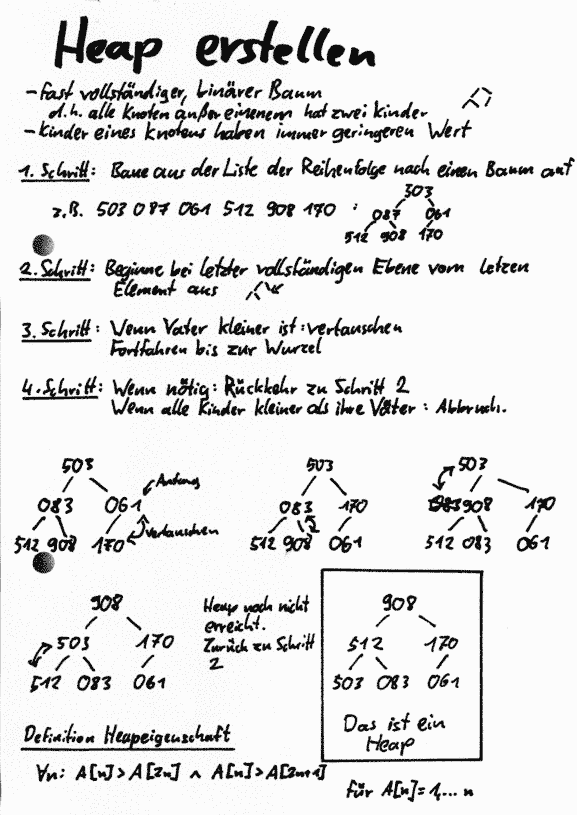 Heap erstellen
- Fast vollständiger, binärer Baum
d.h. alle Knoten außer einenem hat zwei Kinder
- Kinder eines Knotens haben immer geringeren Wert
1. Schritt: Baue aus der Liste der Reihenfolge nach einen Baum auf
z.B. 503 087 061 512 908 170 :
503
087 061
512 908 170
2. Schritt: Beginne bei letzter vollständigen Ebene vom letzen
Element aus
3. Schritt: Wenn Vater kleiner ist: vertauschen
Fortfahren bis zur Wurzel
4. Schritt: Wenn nötig: Rückkehr zu Schritt 2
Wenn alle Kinder kleiner als ihre Väter: Abbruch.
503
083 061 Anfang
512 908 170 vertauschen
503
083 170
512 908 061
503
083 908 170
512 083 061
908
503 170
512 083 061
Heap noch nicht
erreicht.
Zurück zu Schritt
2
908
512 170
503 083 061
Das ist ein
Heap
Definition Heapeigenschaft
∀n: A[n]>A[2n] ∧ A[n]>A[2n+1]
für A[n]=1,... n